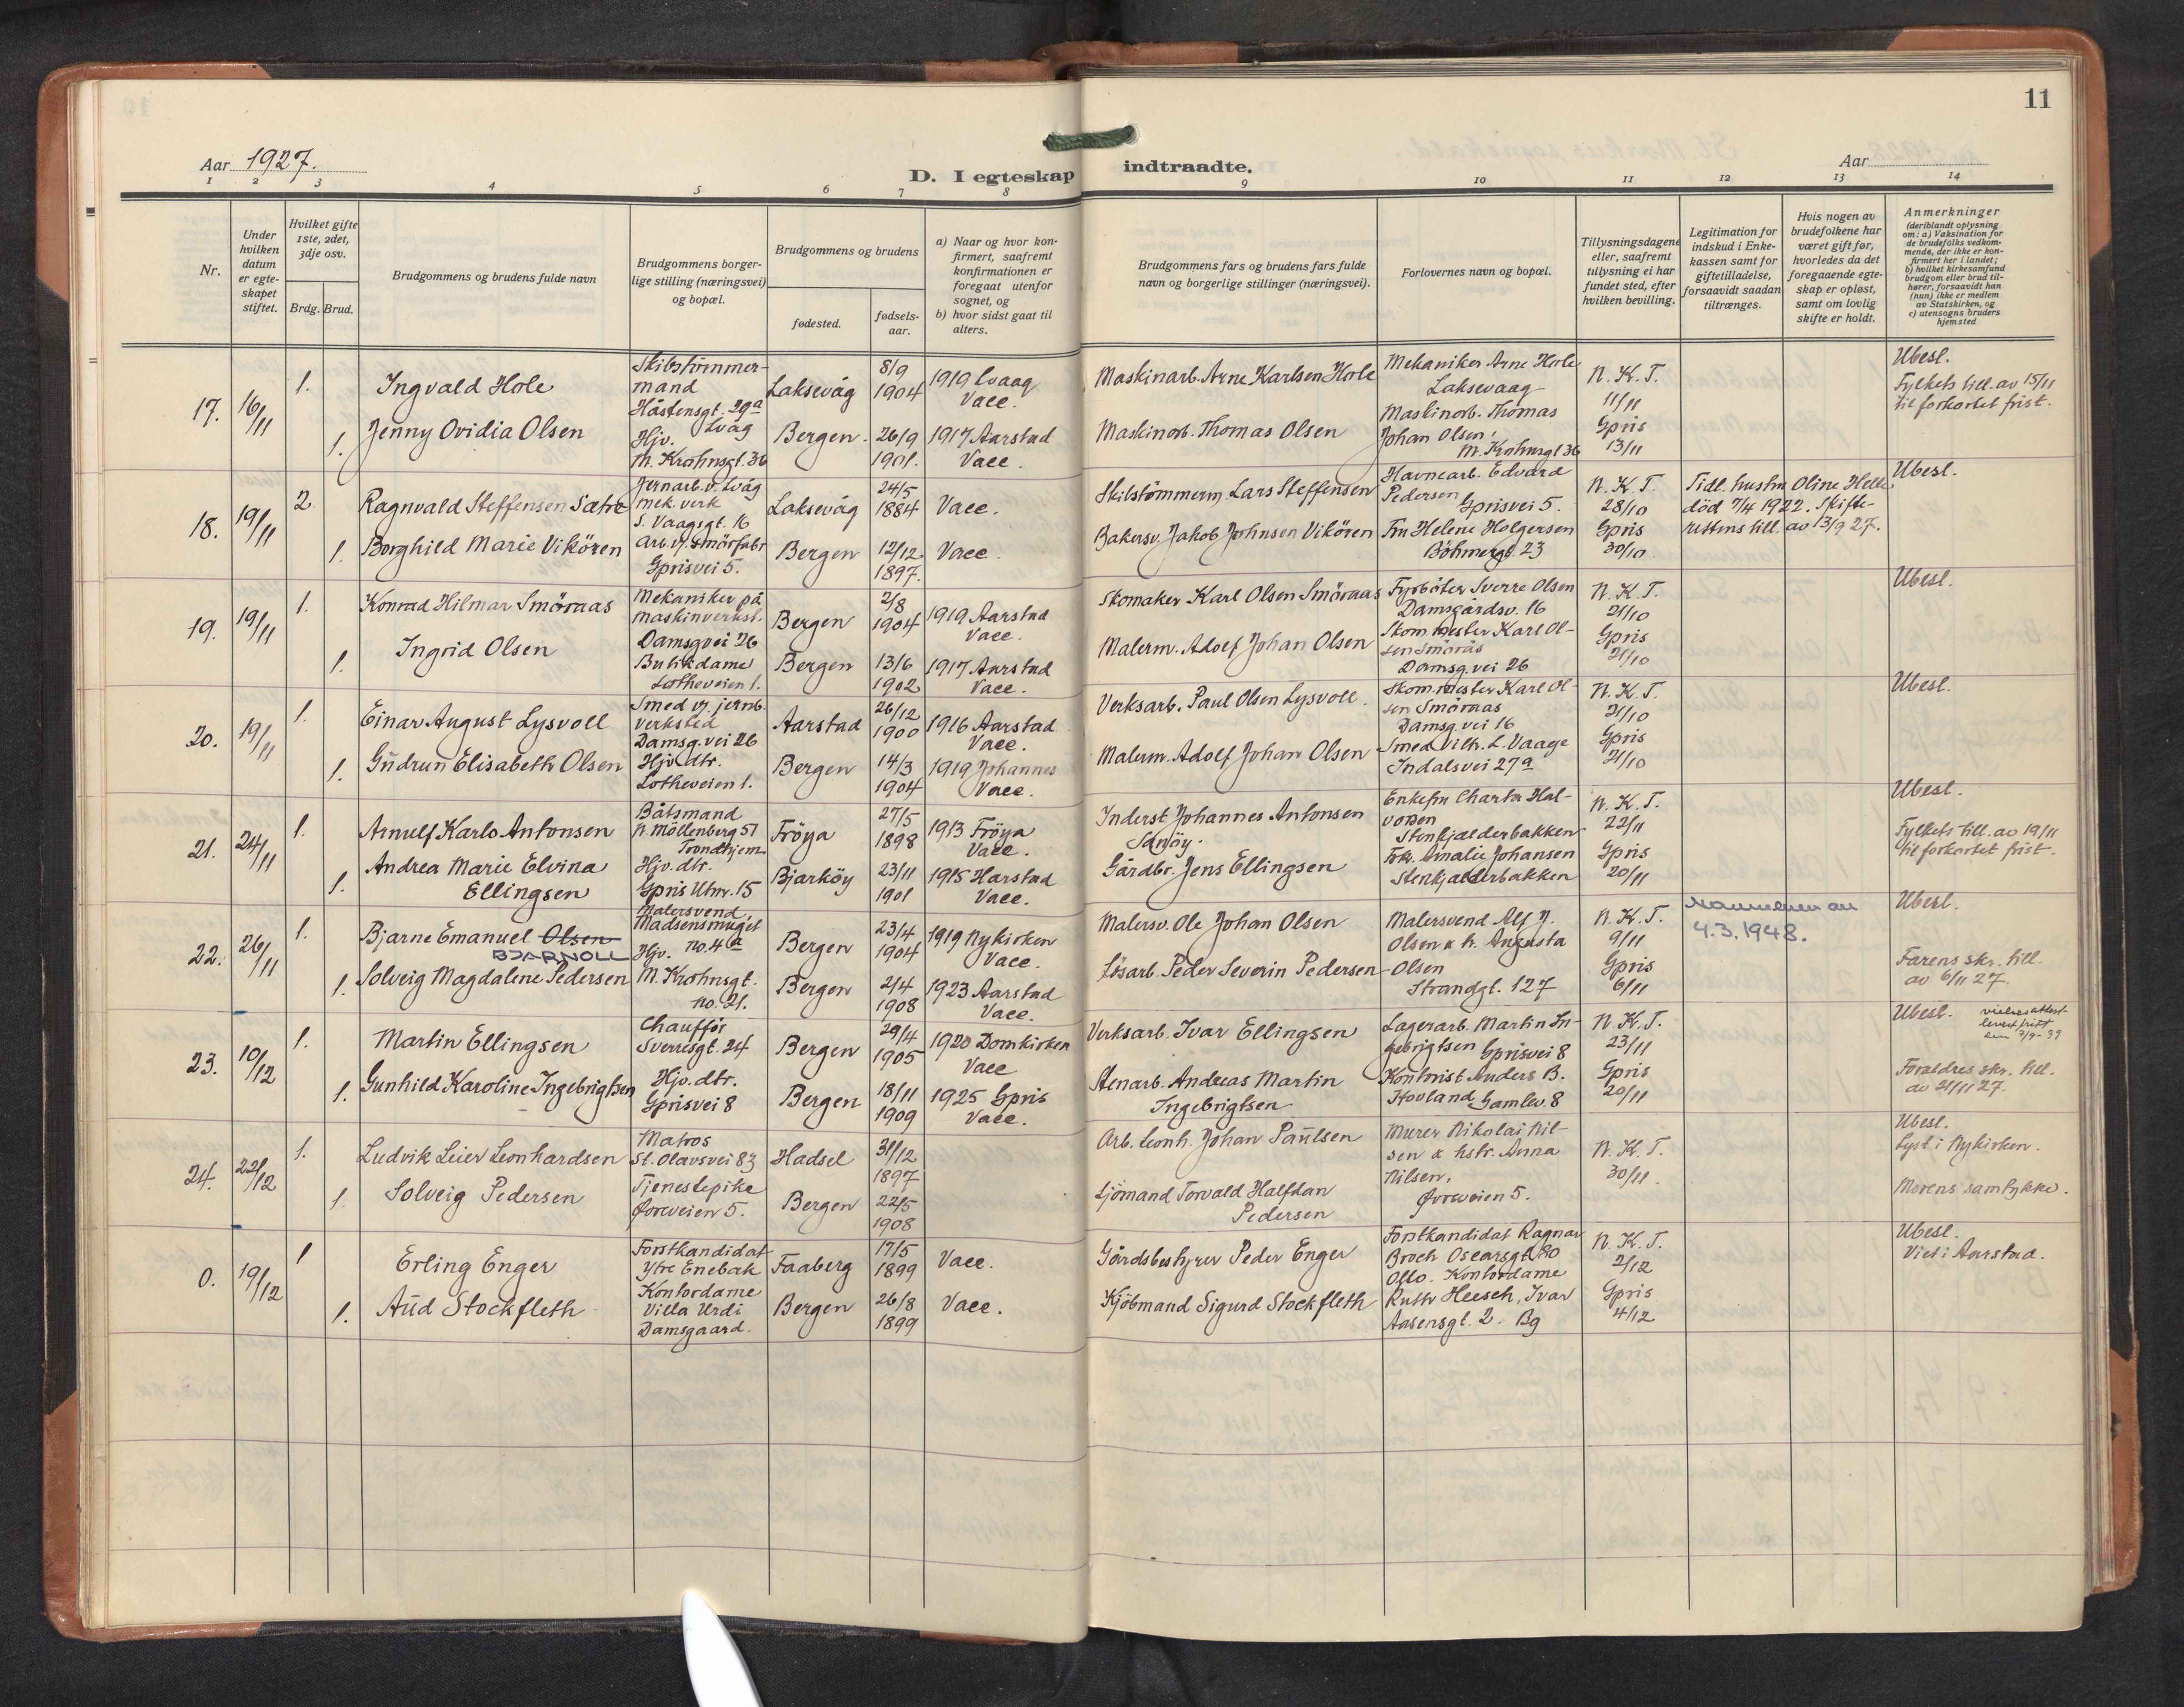 11
Aar 1927.
D. I egteskap indtraadte.
Aar
1 2 3 4 5 6 7 8 9 10 11 12 13 14
Nr.
Under hvilken datum er egte-skapet stiftet.
Hvilket gifte 1ste, 2det, 3dje osv.
Brdg. Brud.
Brudgommens og brudens fulde navn
Brudgommens borger-lige stilling (næringsvei) og bopæl.
Brudgommens og brudens
fødested.
fødsels-aar.
a) Naar og hvor kon-firmert, saafremt konfirmationen er foregaat utenfor sognet, og
b) hvor sidst gaat til alters.
Brudgommens fars og brudens fars fulde navn og borgerlige stillinger (næringsvei).
Forlovernes navn og bopæl.
Tillysningsdagene eller, saafremt tillysning ei har fundet sted, efter hvilken bevilling.
Legitimation for indskud i Enke-kassen samt for giftetilladelse, forsaavidt saadan tiltrænges.
Hvis nogen av brudefolkene har været gift før, hvorledes da det foregaaende egte-skap er opløst, samt om lovlig skifte er holdt.
Anmerkninger (deriblandt oplysning om: a) Vaksination for de brudefolks vedkom-mende, der ikke er kon-firmert her i landet; b) hvilket kirkesamfund brudgom eller brud til-hører, forsaavidt han (hun) ikke er medlem av Statskirken, og c) utensogns bruders hjemsted
17. 16/11
1. Ingvald Hole
Skibstømmer-
mand
Håstensgt. 29a
Lvåg
Laksevåg
8/9
1904
1919 Lvaag
Vacc.
Maskinarb. Arne Karlsen Hole
Mekaniker Arne Hole
Laksevaag
N. K. T.
11/11
Ubesl.
Fylkets till. av 15/11
til forkortet frist.
1. Jenny Ovidia Olsen
Hjv.
M. Krohnsgt. 36
Bergen.
26/9
1901.
1917 Aarstad
Vacc.
Maskinarb. Thomas Olsen
Maskinarb. Thomas
Johan Olsen,
M. Krohnsgt 36
Gpris
13/11
18. 19/11
2 Ragnvald Steffensen Sætre
Jernarb. v. Lvåg
mek. verk
S. Vaagsgt. 16
Laksevåg
24/5
1884
Vacc.
Skibstömmerm. Lars Steffensen
Havnearb. Edvard
Pedersen
Gprisvei 5.
N. K. T.
28/10
Tidl. hustru Oline Helle
död 7/4 1922. Skifte-
rettens till. av 13/9 27.
Ubesl.
1. Borghild Marie Vikören
Arb. v. smörfabr
Gprisvei 5.
Bergen
12/12
1897.
Vacc.
Bakersv. Jakob Johnsen Vikören
Fru Helene Holgersen
Böhmergt. 23
Gpris
30/10
19. 19/11
1. Konrad Hilmar Smöraas
Mekaniker på
maskinverkst.
Damsgvei 26
Bergen
2/8
1904
1919 Aarstad
Vacc.
Skomaker Karl Olsen Smöraas
Fyrböter Sverre Olsen
Damsgårdsv. 16
N. K. T.
21/10
Ubesl.
1. Ingrid Olsen
Butikdame
Lotheveien 1.
Bergen
13/6
1902
1917 Aarstad
Vacc.
Malerm. Adolf Johan Olsen
Skom.mester Karl Ol-
sen Smörås
Damsg.vei 26
Gpris
21/10
20. 19/11
1. Einar August Lysvoll
Smed v. jernb.
verksted
Damsg.vei 26
Aarstad
26/12
1900
1916 Aarstad
Vacc.
Verksarb. Paul Olsen Lysvoll.
Skom.mester Karl Ol-
sen Smöraas
Damsg.vei 16
N. K. T.
21/10
Ubesl.
1. Gudrun Elisabeth Olsen
Hjv. dtr.
Lotheveien 1.
Bergen
14/3
1904
1919 Johannes
Vacc.
Malerm. Adolf Johan Olsen
Smed Vilh. L. Vaage
Indalsvei 27a
Gpris
21/10
21. 24/11
1. Arnulf Karlo Antonsen
Båtsmand
N. Möllenberg 57
Trondhjem
Fröya
27/5
1898
1913 Fröya
Vacc.
Inderst Johannes Antonsen
Enkefru Charta Hal-
vorsen
Stenkjælderbakken
N. K. T.
22/11
Ubesl.
Fylkets till. av 19/11
til forkortet frist.
1. Andrea Marie Elvina
Ellingsen
Hjv. dtr.
Gpris Utnr. 15
Bjarköy
23/11
1901
1915 Harstad
Vacc.
Gårdbr. Jens Ellingsen
Amalie Johansen
Stenkjælderbakken
Gpris
20/11
22. 26/11
1. Bjarne Emanuel Olsen
BJARNOLL
Malersvend
Madsensmuget
no. 4a
Bergen
23/4
1904
1919 Nykirken
Vacc.
Malersv. Ole Johan Olsen
Malersvend Alf J.
Olsen & h. Augusta
Olsen
Strandgt. 127
N. K. T.
9/11
4.3.1948.
Ubesl.
1. Solveig Magdalene Pedersen
Hjv.
M. Krohnsgt.
no. 21.
Bergen
2/4
1908
1923 Aarstad
Vacc.
Lösarb. Peder Severin Pedersen
Gpris
6/11
Farens skr. till.
av 6/11 27.
23. 10/12
1. Martin Ellingsen
Chaufför
Sverresgt. 24
Bergen
29/4
1905
1920 Domkirken
Vacc
Verksarb. Ivar Ellingsen
Lagerarb. Martin In-
gebrigtsen Gprisvei 8
N. K. T.
23/11
Ubesl.
vielsesattest
1. Gunhild Karoline Ingebrigtsen
Hjv. dtr.
Gprisvei 8
Bergen
18/11
1909
1925 Gpris
Vacc.
Stenarb. Andreas Martin
Ingebrigtsen
Kontorist Anders B.
Hovland Gamlev. 8
Gpris
20/11
Foraldres skr. till.
av 21/11 27.
24. 22/12
1. Ludvik Leier Leonhardsen
Matros
St. Olavsvei 83
Hadsel
31/12
1897
Arb. Leonh. Johan Paulsen
Murer Nikolai Nil-
sen & hstr. Anna
Nilsen,
Øvreveien 5.
N. K. T.
30/11.
Ubesl.
Lyst i Nykirken.
1. Solveig Pedersen
Tjenestepike
Øvreveien 5.
Bergen
22/5
1908
Sjömand Torvald Halfdan
Pedersen
Morens samtykke.
0. 19/12
1 Erling Enger
Forstkandidat
Ytre Enebak
Faaberg
17/5
1899
Vacc.
Gårdsbestyrer Peder Enger
Forstkandidat Ragnar
Broch Oscarsgt. 80
Oslo.
N. K. T.
2/12
Ubesl.
Viet i Aarstad.
1. Aud Stockfleth
Kontordame
Villa Urdi
Damsgaard.
Bergen
26/8
1899
Vacc.
Kjöbmand Sigurd Stockfleth
Kontordame
Ruth Heesch, Ivar
Aasensgt. 2. Bg
Gpris
4/12